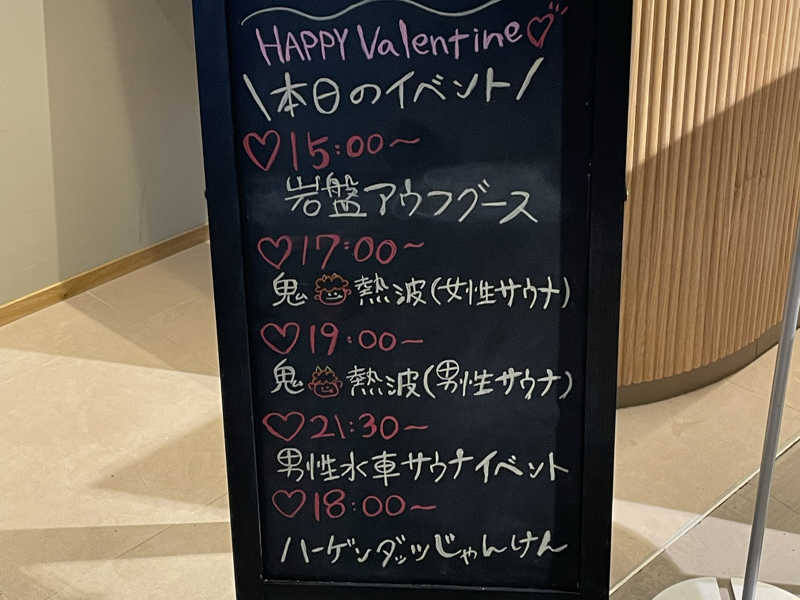 HAPPY Valentine♡
\本日のイベント/
♡15:00～
岩盤アウフグース
♡17:00～
鬼👹熱波(女性サウナ)
♡19:00～
鬼👹熱波(男性サウナ)
♡21:30～
男性水車サウナイベント
♡18:00～
ハーゲンダッツじゃんけん